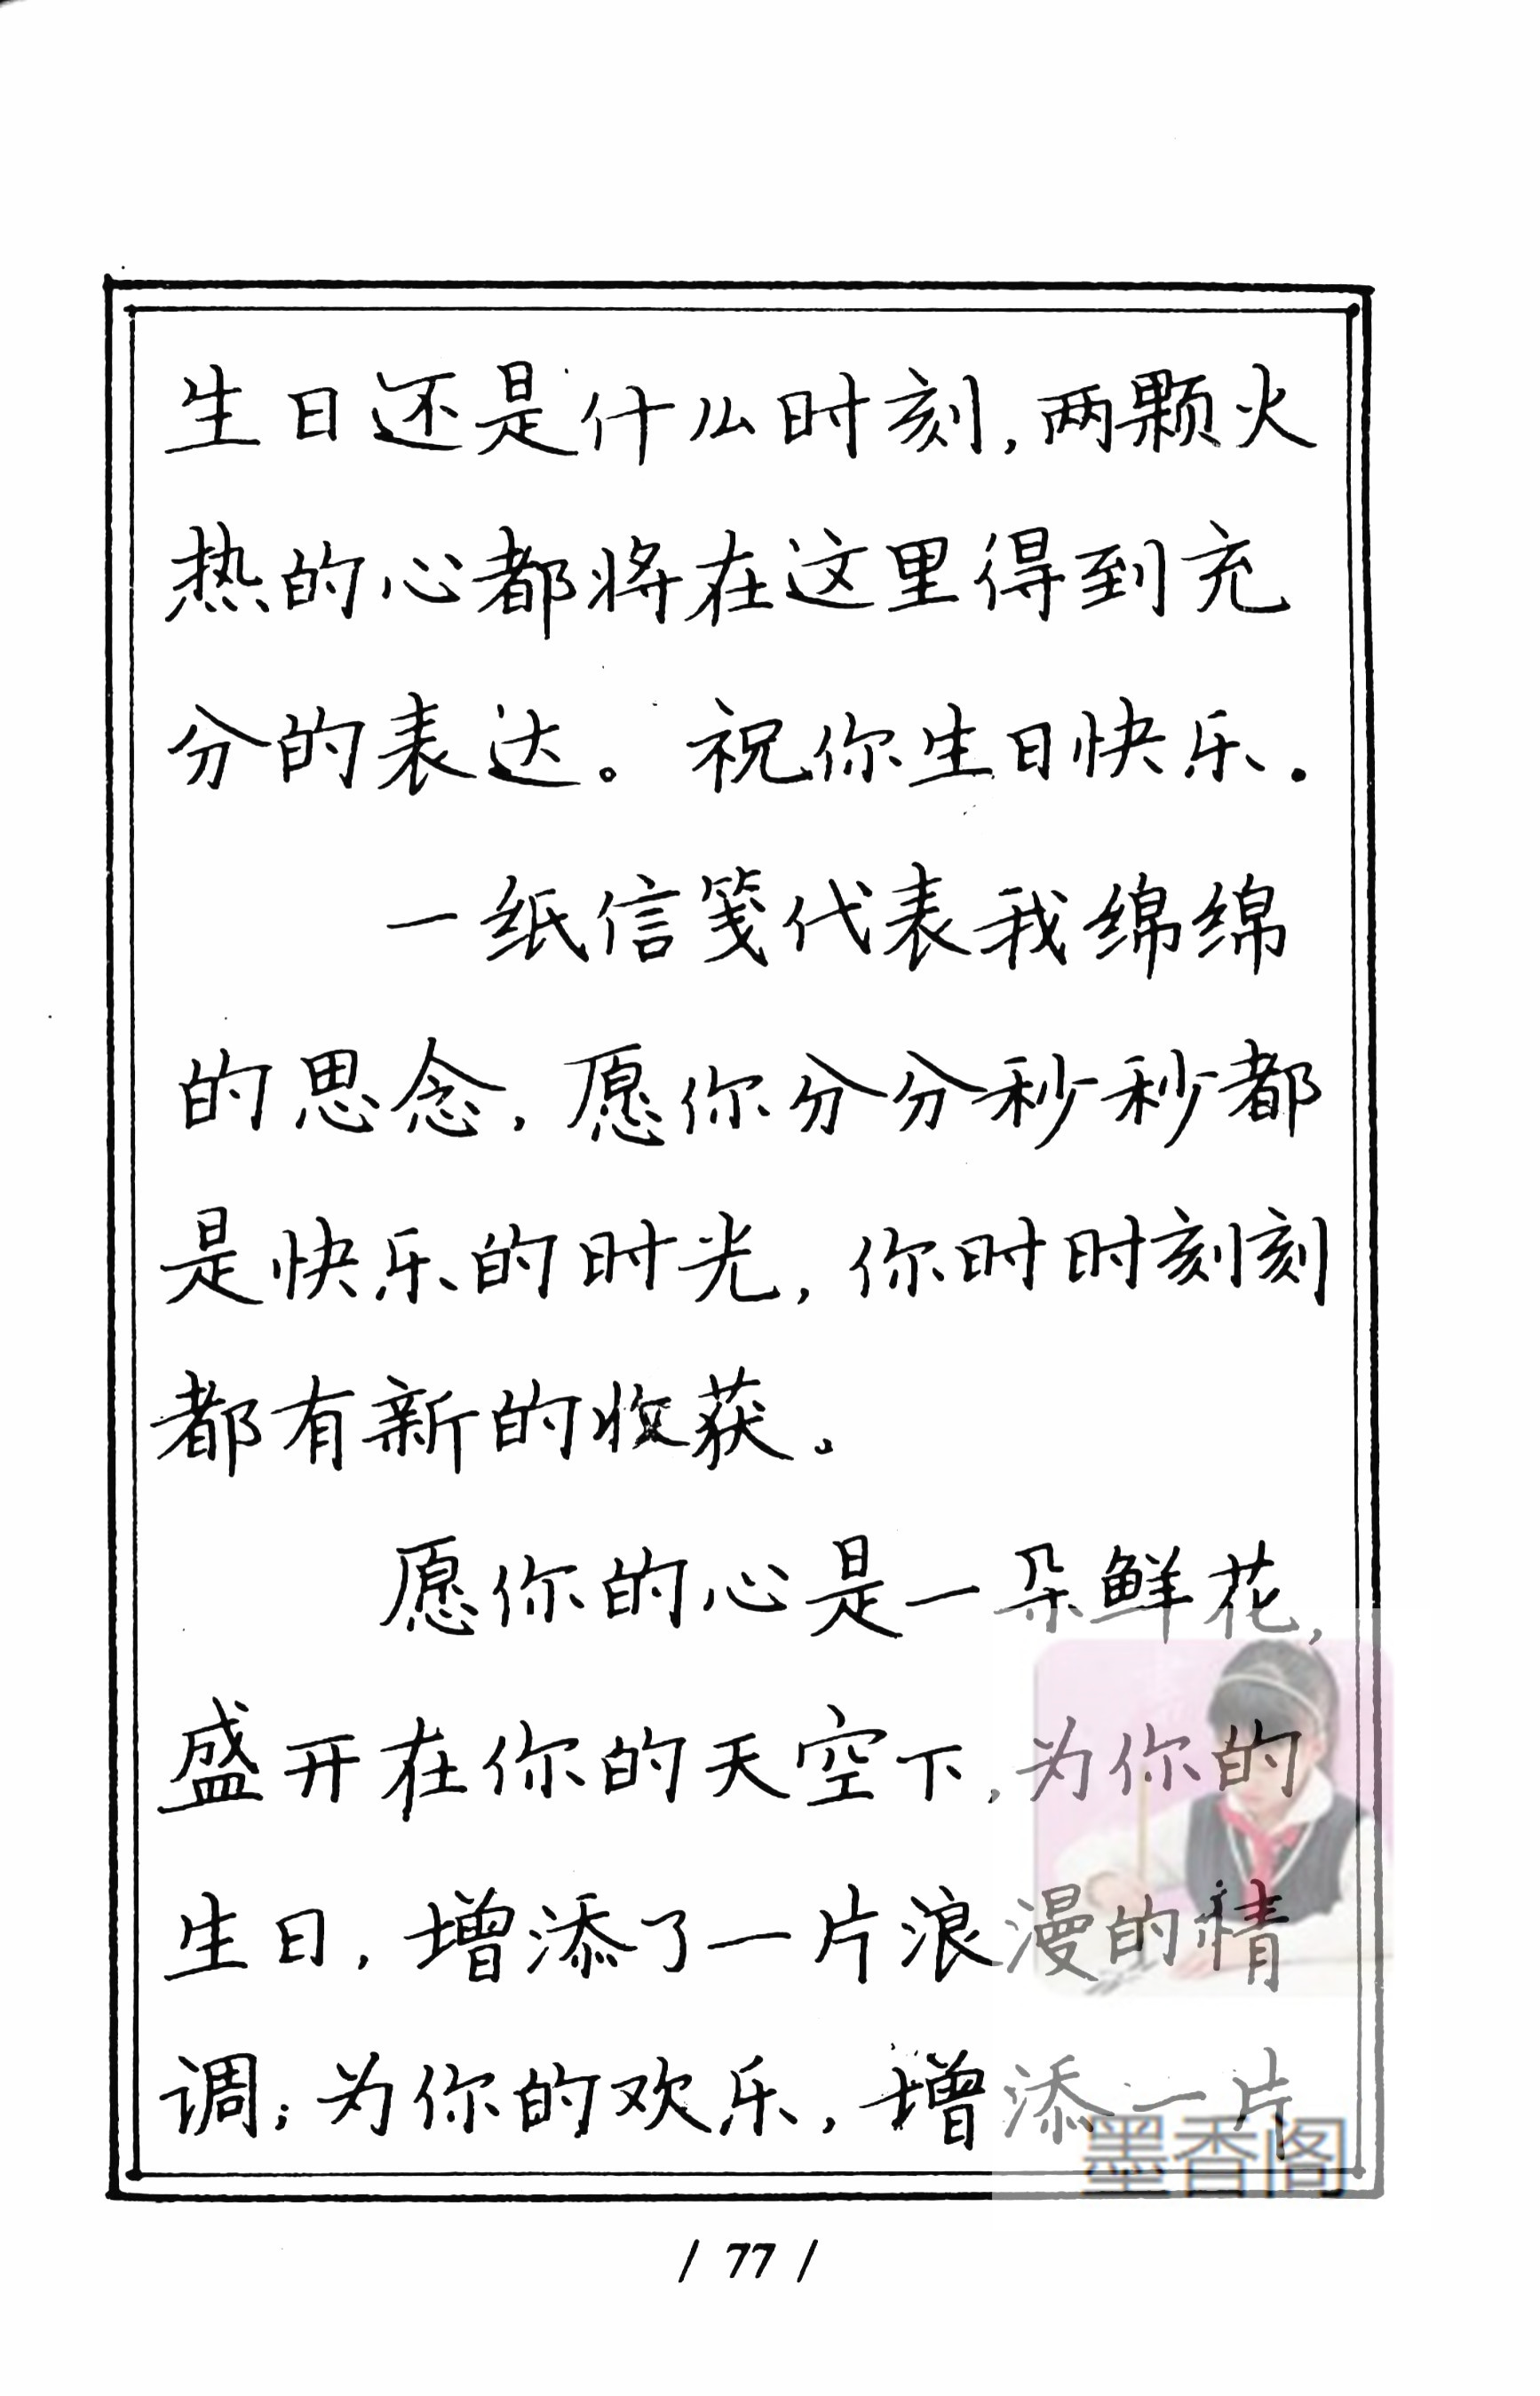 生日还是什么时刻,两颗火
热的心都将在这里得到充
分的表达。祝你生日快乐.
一纸信笺代表我绵绵
的思念,愿你分分秒秒都
是快乐的时光,你时时刻刻
都有新的收获。
愿你的心是一朵鲜花,
盛开在你的天空下,为你的
生日,增添了一片浪漫的情
调;为你的欢乐,增添一片
墨香阁
/ 77 /